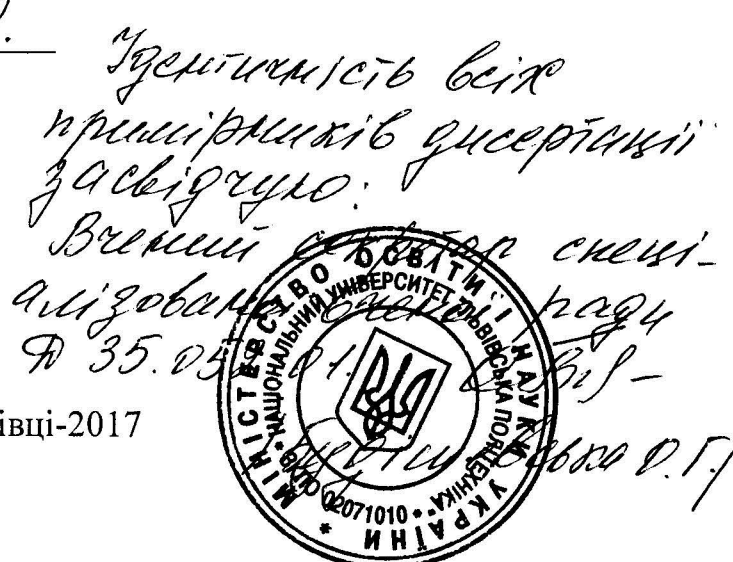 Ідентичність всіх
примірників дисертації
засвідчую.
Вчений секретар спеці-
алізованої вченої ради
Д 35.05 01.
івці-2017
ська О.Г./
МІНІСТЕРСТВО ОСВІТИ І НАУКИ УКРАЇНИ *
НАЦІОНАЛЬНИЙ УНІВЕРСИТЕТ "ЛЬВІВСЬКА ПОЛІТЕХНІКА" *
02071010